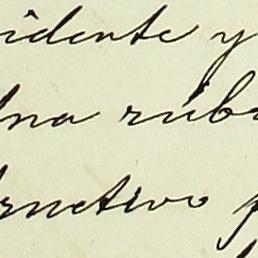 idente y
na rúb
rnativo